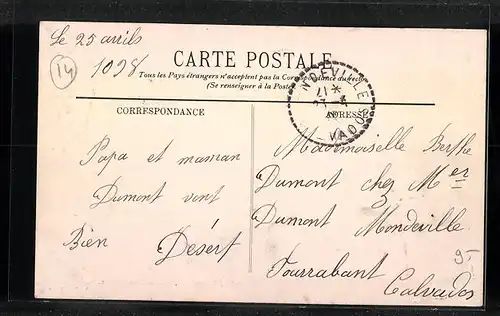 Le 25 avrils
14
1098
CARTE POSTALE
Tous les Pays étrangers n'acceptent pas la Correspondance au recto
(Se renseigner à la Poste)
CORRESPONDANCE
ADRESSE
Papa et maman
Dumont vont
Bien Désert
Mademoiselle Berthe
Dumont chez Mer
Dumont Mondeville
Tourrabant
Calvados
9-